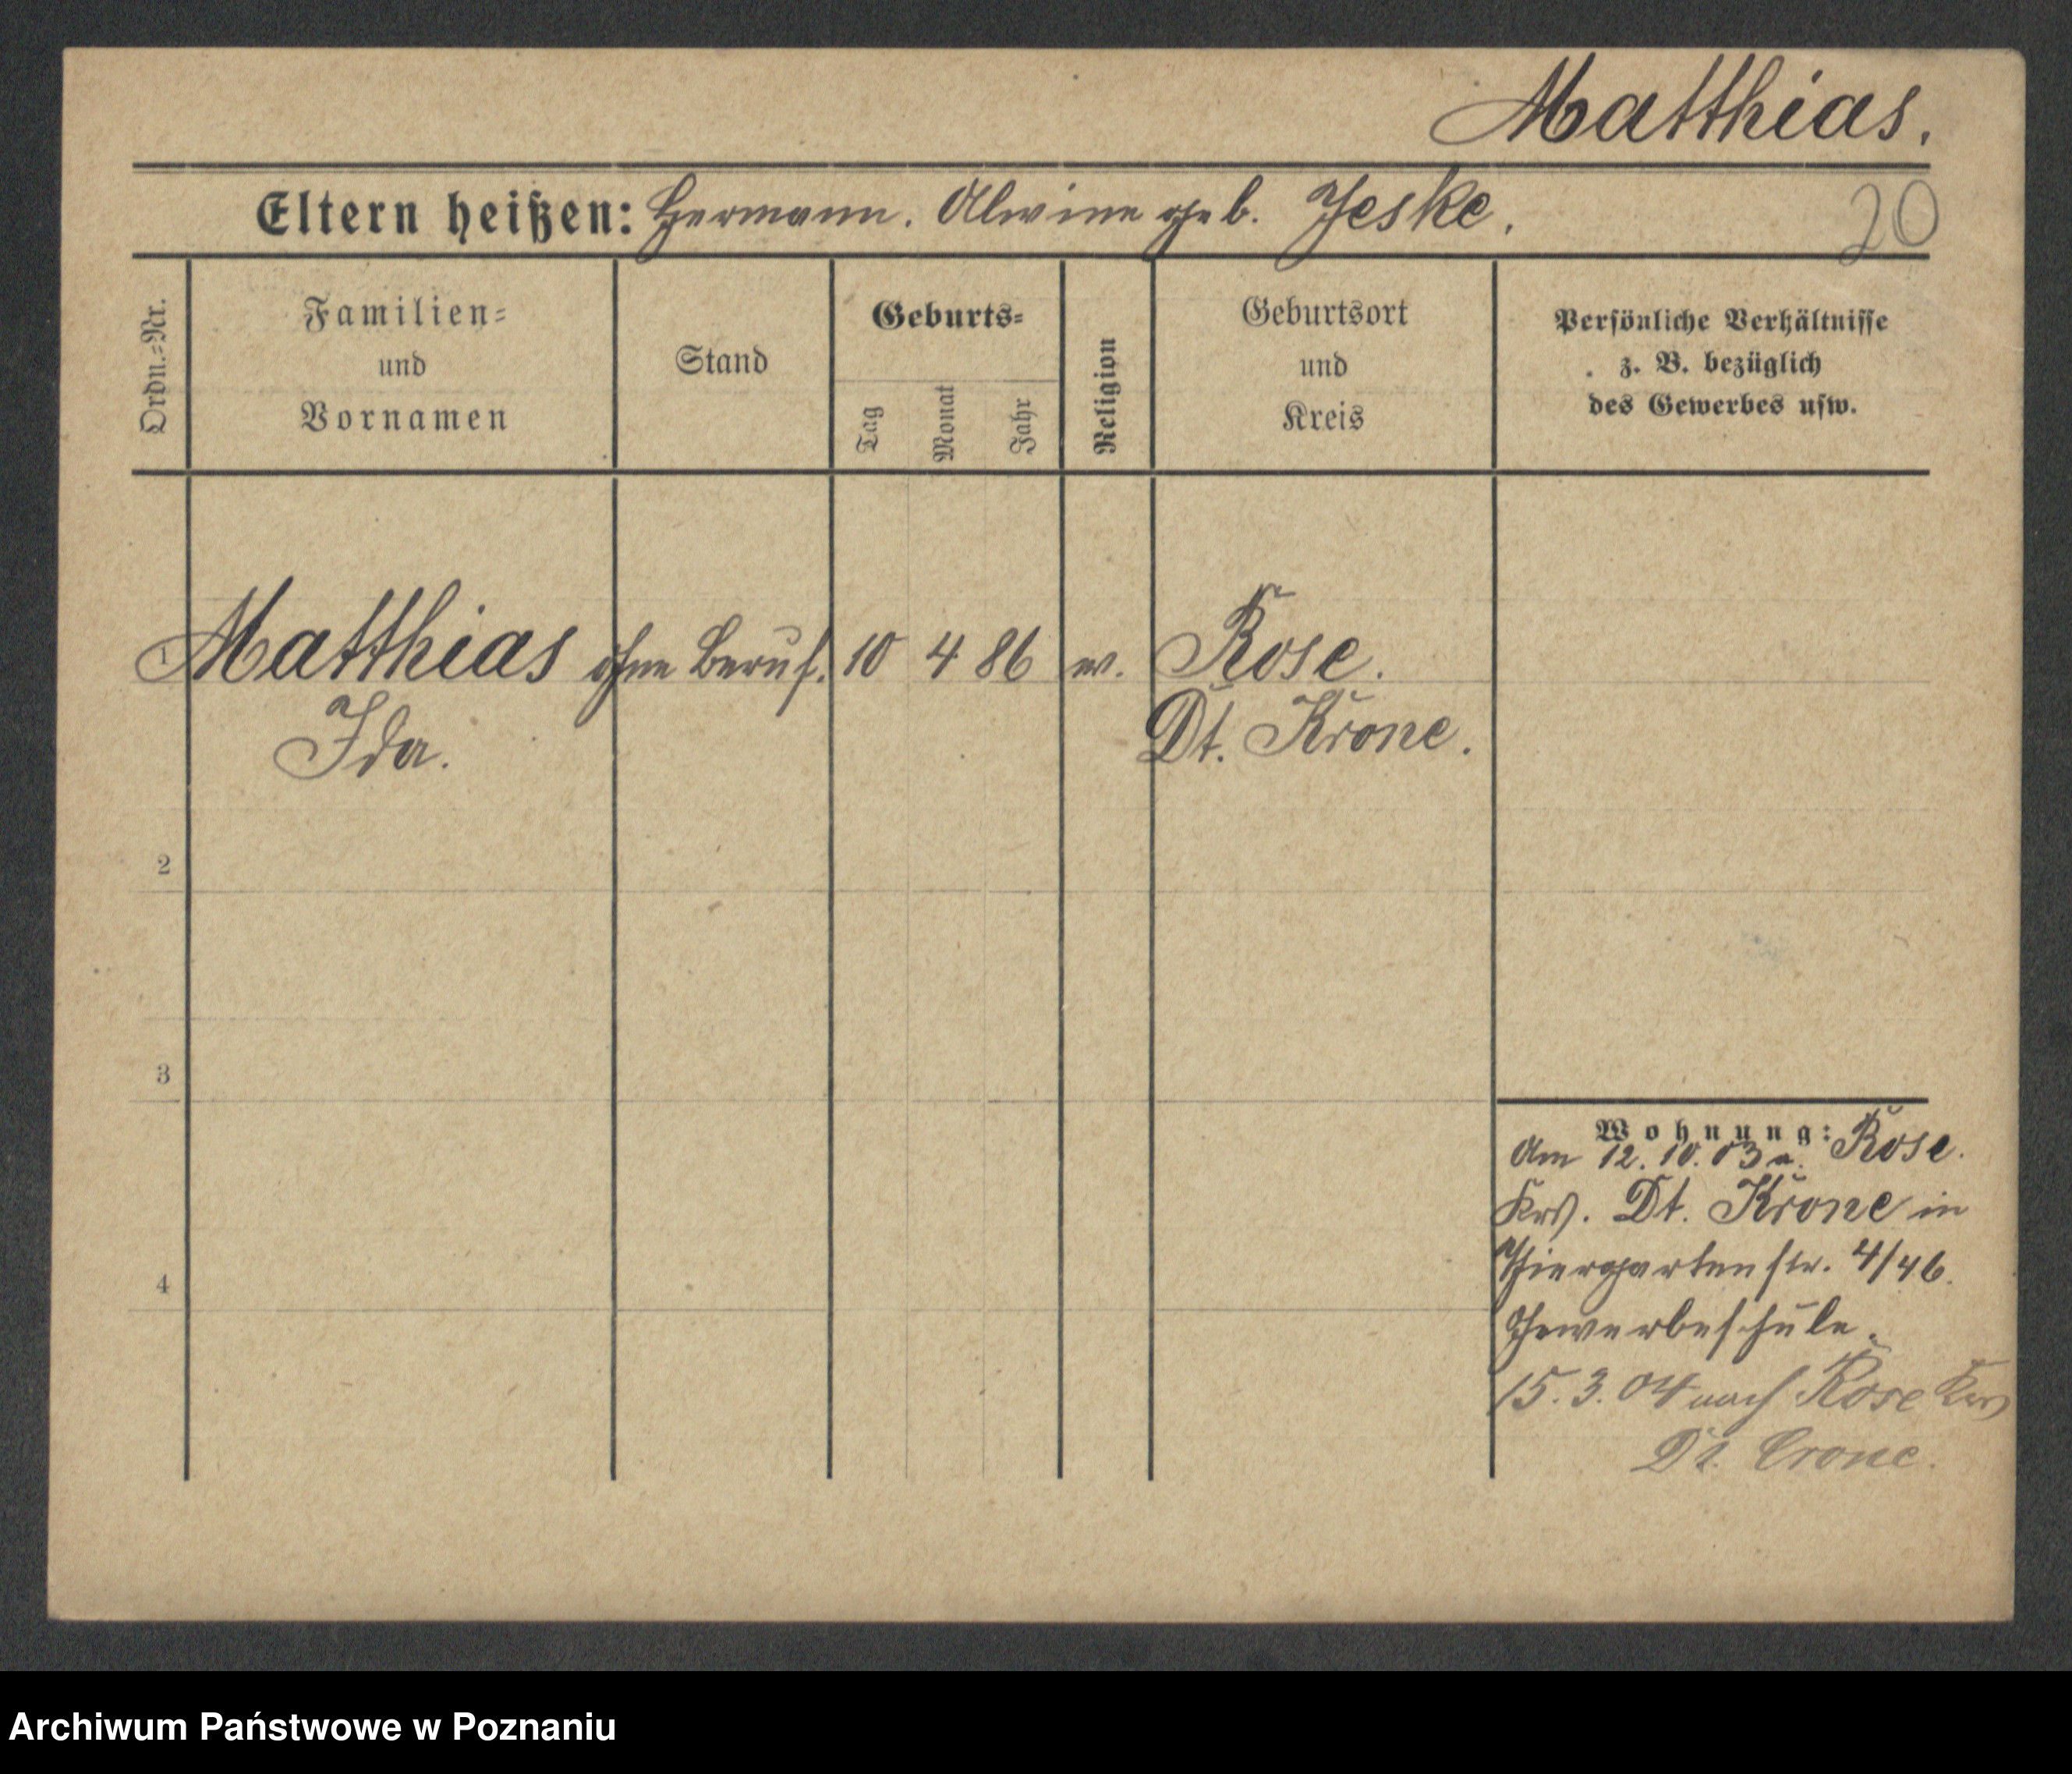 Matthias.
Eltern heißen: Hermann. Alwine geb. Jeske.
20
Ordn.=Nr.
Familien=
und
Vornamen
Stand
Geburts=
Tag
Monat
Jahr
Religion
Geburtsort
und
Kreis
Persönliche Verhältnisse
z. B. bezüglich
des Gewerbes usw.
1 Matthias ohne Beruf. 10 4 86 ev. Rose.
Ida. Dt. Krone.
2
3
4
Wohnung: Rose.
Am 12. 10. 03 a.
Krs. Dt. Krone in
Thiergartenstr. 4/46.
Gewerbeschule.
15. 3. 04 nach Rose Krs
Dt. Crone.
Archiwum Państwowe w Poznaniu